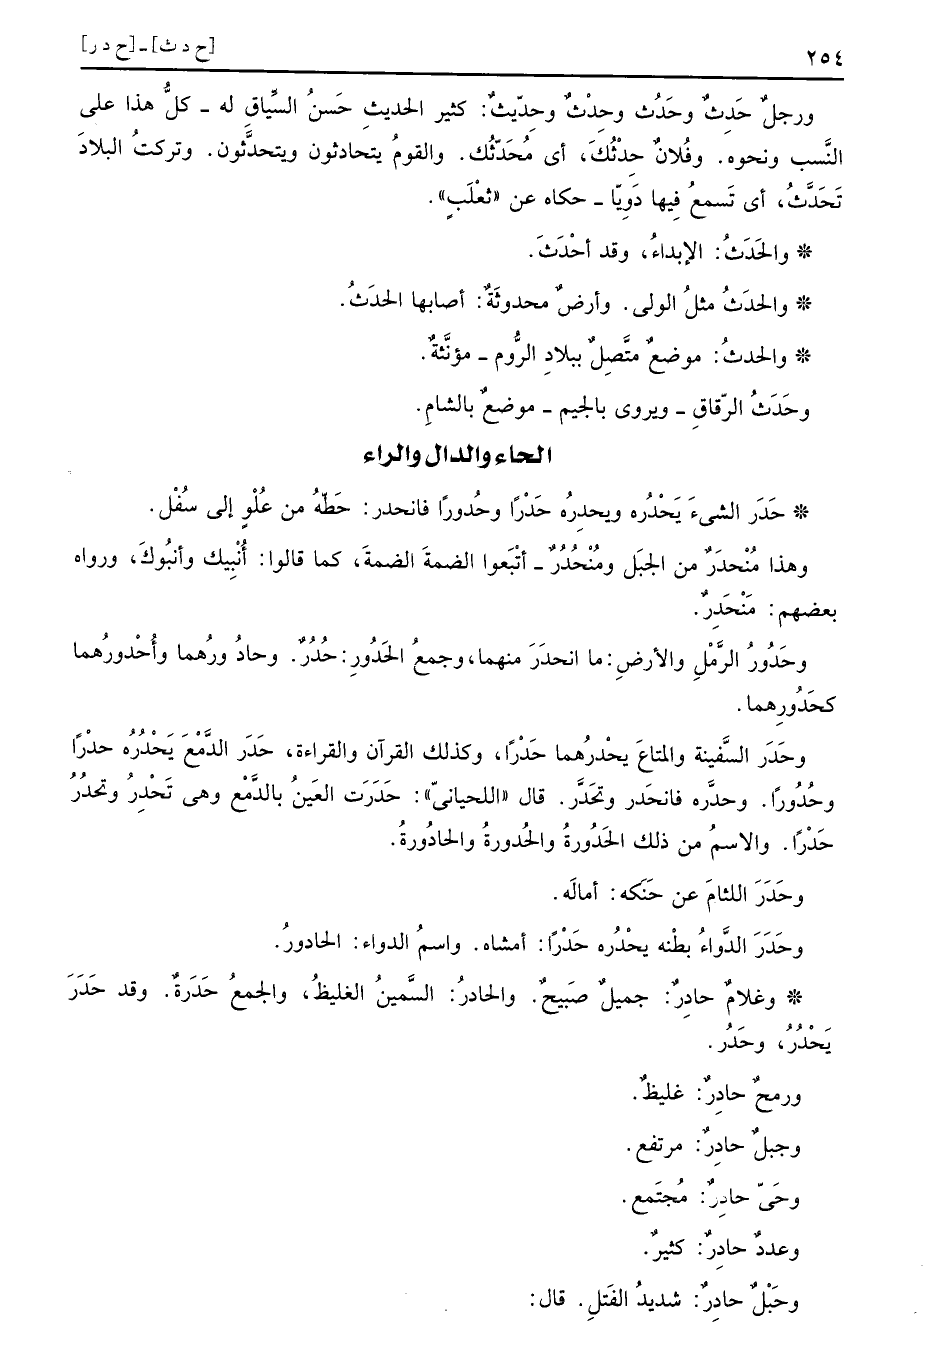 ٢٥٤
[ح د ث] ـ [ح د ر]
ورجلٌ حَدِثٌ وحَدُث وحِدْثٌ وحِدّيثٌ: كثير الحديثِ حَسنُ السِّياقِ له ـ كلُّ هذا على
النَّسب ونحوه. وفُلانٌ حِدْثُكَ، أى مُحَدِّثُك. والقومُ يتحادثون ويتحدَّثون. وتركتُ البلادَ
تَحَدَّثُ، أى تَسمعُ فِيها دَوِيّا ـ حكاه عن «ثعْلَبٍ».
* والحَدَثُ: الإبداءُ، وقد أحْدَثَ.
* والحدَثُ مثلُ الولى. وأرضٌ محدوثَةٌ: أصابها الحدَثُ.
* والحدثُ: موضعٌ متَّصِلٌ ببلادِ الرُّوم ـ مؤنَّثةٌ.
وحَدَثُ الرّقاقِ ـ ويروى بالجيم ـ موضعٌ بالشامِ.
الحاء والدال والراء
* حَدَر الشىءَ يَحْدُره ويحدِرُه حَدْرًا وحُدورًا فانحدر: حَطّهُ من عُلْوٍ إلى سُفْل.
وهذا مُنْحدَرٌ من الجبَل ومُنْحُدُرٌ ـ أتْبَعوا الضمةَ الضمةَ، كما قالوا: أُنْبِيك وأنبُوكَ، ورواه
بعضهم: مَنْحَدِرٌ.
وحَدُورُ الرَّمْلِ والأرضِ: ما انحدَرَ منهما، وجمعُ الحَدُورِ: حُدُرٌ. وحادُ ورُهما وأُحْدورُهما
كحَدُورِهما.
وحَدَرَ السَّفينة والمتاعَ يحْدرُهما حَدْرًا، وكذلك القرآن والقراءة، حَدَر الدَّمْعَ يَحْدُرُه حدْرًا
وحُدُورًا. وحدَّره فانحَدر وتحَدَّر. قال «اللحيانىّ»: حَدَرَت العَينُ بالدَّمْع وهى تَحْدِرُ وتحدُرُ
حَدْرًا. والاسمُ من ذلك الحَدُورةُ والحُدورةُ والحادُورةُ.
وحَدَرَ اللثامَ عن حَنَكه: أمالَه.
وحَدَرَ الدَّواءُ بطْنه يحْدُره حَدْرًا: أمشاه. واسمُ الدواء: الحادورُ.
* وغلامٌ حادِرٌ: جميلٌ صَبيحٌ. والحادرُ: السَّمينُ الغليظُ، والجمعُ حَدَرةٌ. وقد حَدَرَ
يَحْدُرُ، وحَدُر.
ورمحٌ حادِرٌ: غليظٌ.
وجبلٌ حادِرٌ: مرتفع.
وحَىّ حادِرٌ: مُجتَمع.
وعددٌ حادِرٌ: كثيرٌ.
وحَبْلٌ حادِرٌ: شديدُ الفَتلِ. قال: